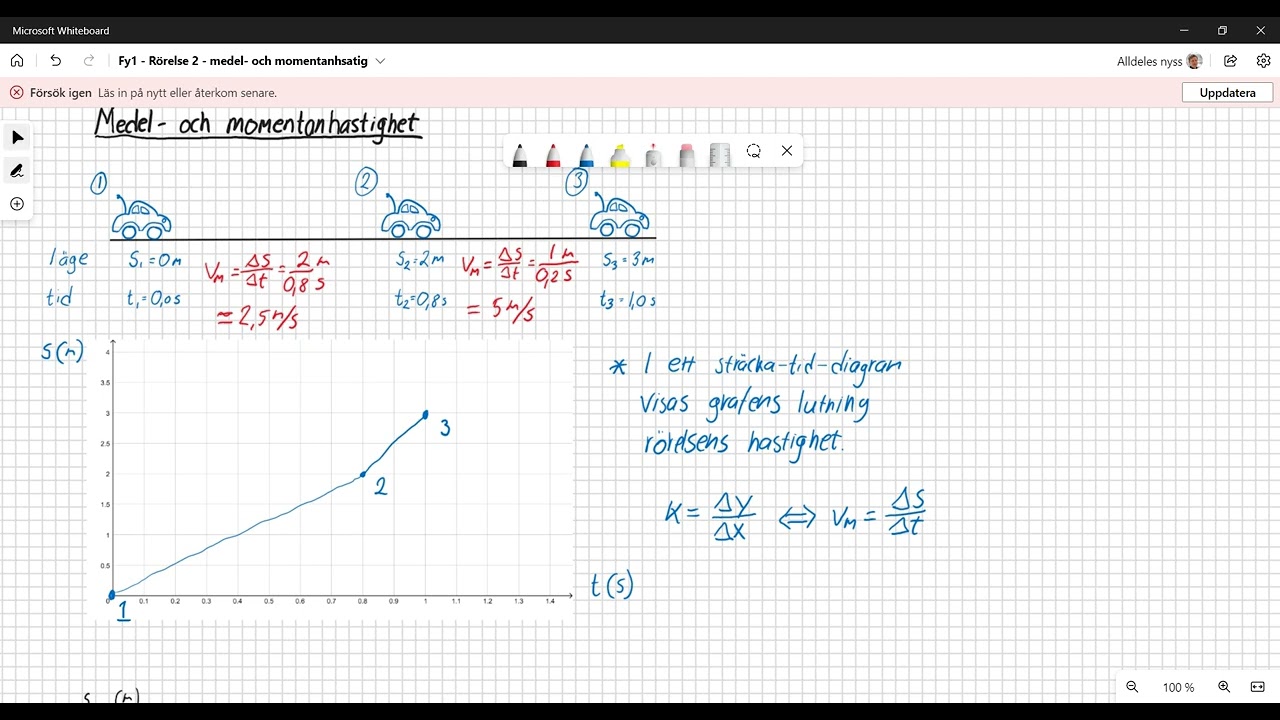 Microsoft Whiteboard
Fy1 - Rörelse 2 - medel- och momentanhsatig
Alldeles nyss
Försök igen Läs in på nytt eller återkom senare.
Uppdatera
Medel- och momentanhastighet
1 2 3
läge S₁=0m S₂=2m S₃=3m
Vₘ = ΔS/Δt = 2 m/0,8 s
Vₘ = ΔS/Δt = 1 m/0,2 s
tid t₁=0,0s t₂=0,8s t₃=1,0s
≈ 2,5 m/s
= 5 m/s
S(m)
4
3.5
3
2.5
2
1.5
1
0.5
0 0.1 0.2 0.3 0.4 0.5 0.6 0.7 0.8 0.9 1 1.1 1.2 1.3 1.4
1
2
3
t(s)
* I ett sträcka-tid-diagram
visas grafens lutning
rörelsens hastighet.
K = Δy/Δx ⇔ Vₘ = ΔS/Δt
S (m)
100 %